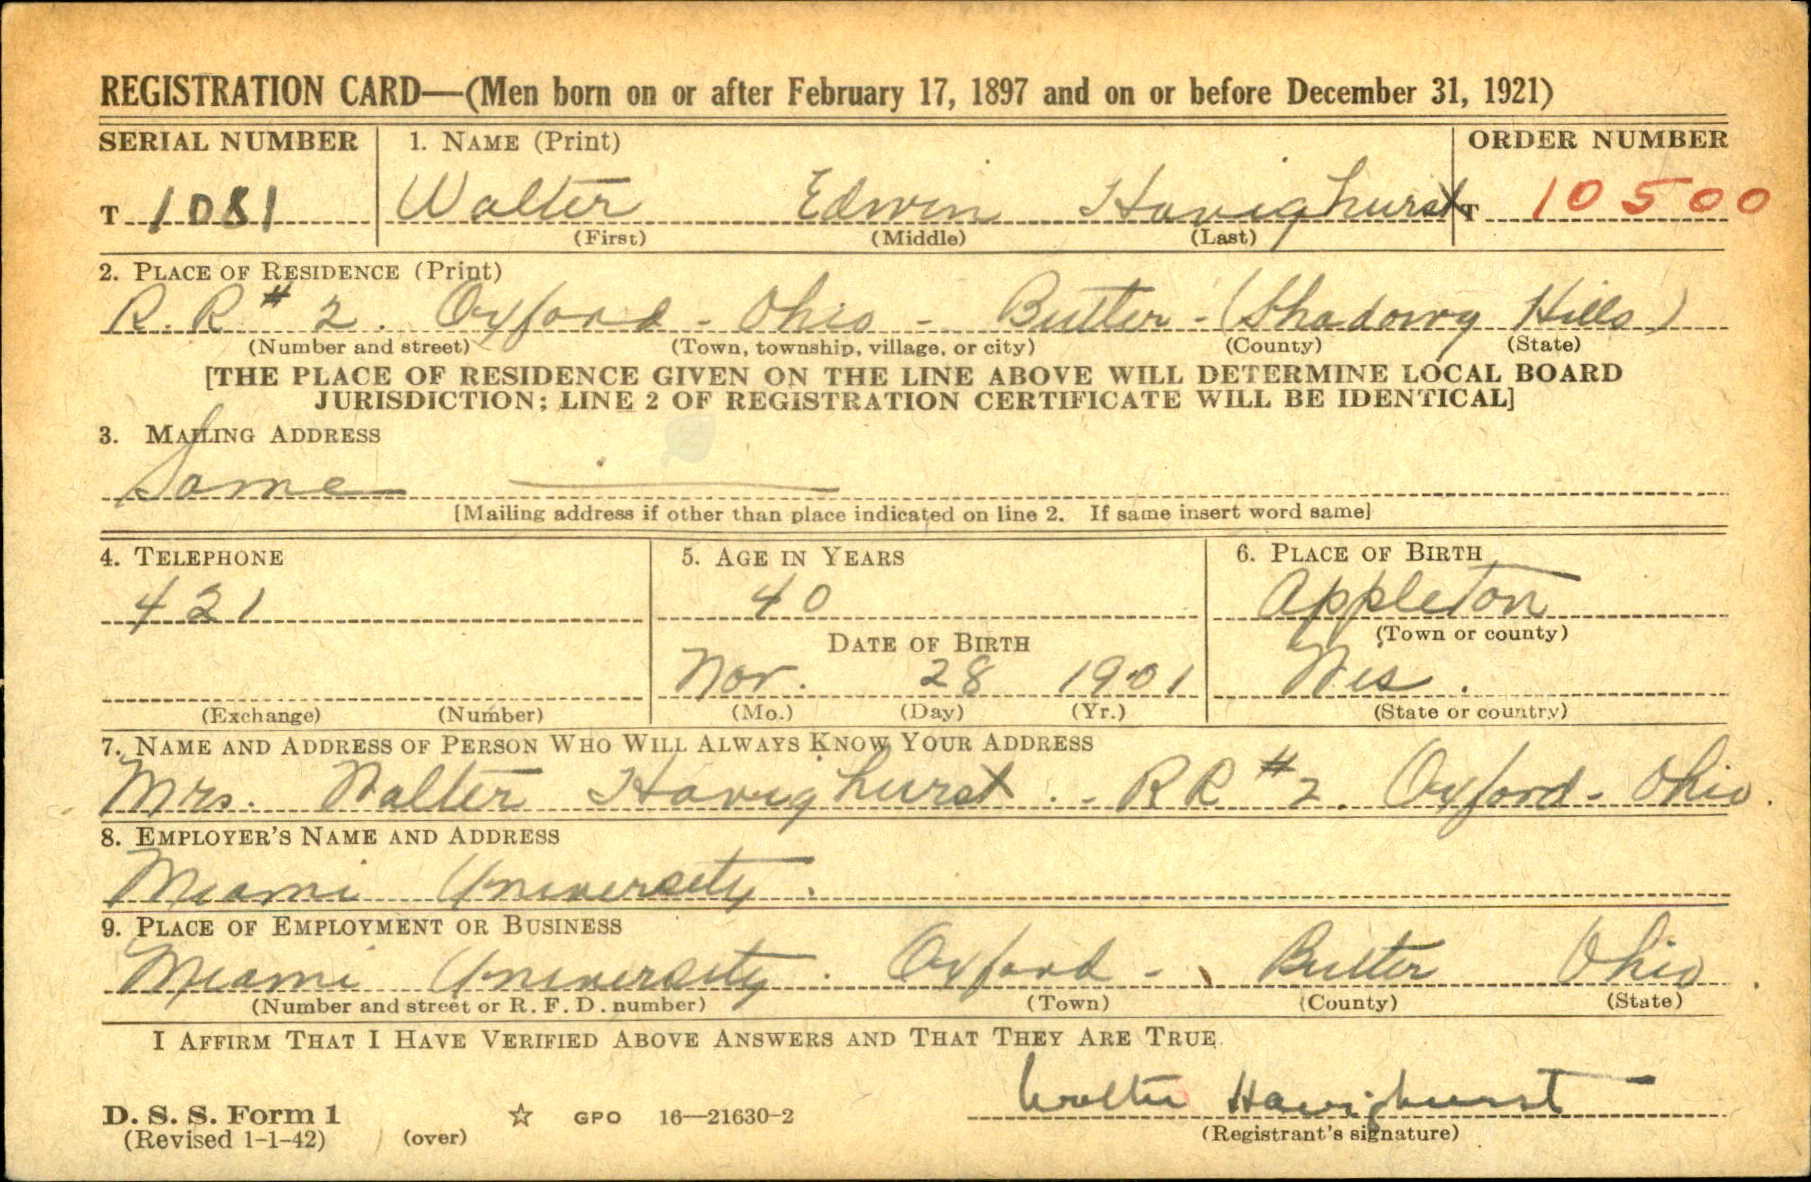 REGISTRATION CARD—(Men born on or after February 17, 1897 and on or before December 31, 1921)
SERIAL NUMBER 1. NAME (Print) ORDER NUMBER
T 1081 Walter Edwin Havighurst T 10500
(First) (Middle) (Last)
2. PLACE OF RESIDENCE (Print)
R. R # 2. Oxford - Ohio - Butler - (Shadowy Hills)
(Number and street) (Town, township, village, or city) (County) (State)
[THE PLACE OF RESIDENCE GIVEN ON THE LINE ABOVE WILL DETERMINE LOCAL BOARD
JURISDICTION; LINE 2 OF REGISTRATION CERTIFICATE WILL BE IDENTICAL]
3. MAILING ADDRESS
Same
[Mailing address if other than place indicated on line 2. If same insert word same]
4. TELEPHONE 5. AGE IN YEARS 6. PLACE OF BIRTH
421 40 Appleton
(Town or county)
DATE OF BIRTH
Nov. 28 1901 Wis.
(Exchange) (Number) (Mo.) (Day) (Yr.) (State or country)
7. NAME AND ADDRESS OF PERSON WHO WILL ALWAYS KNOW YOUR ADDRESS
Mrs. Walter Havighurst - RR #2. Oxford - Ohio.
8. EMPLOYER'S NAME AND ADDRESS
Miami University.
9. PLACE OF EMPLOYMENT OR BUSINESS
Miami University. Oxford - Butler Ohio.
(Number and street or R. F. D. number) (Town) (County) (State)
I AFFIRM THAT I HAVE VERIFIED ABOVE ANSWERS AND THAT THEY ARE TRUE.
Walter Havighurst
D. S. S. Form 1 GPO 16—21630-2
(Revised 1-1-42) (over) (Registrant's signature)